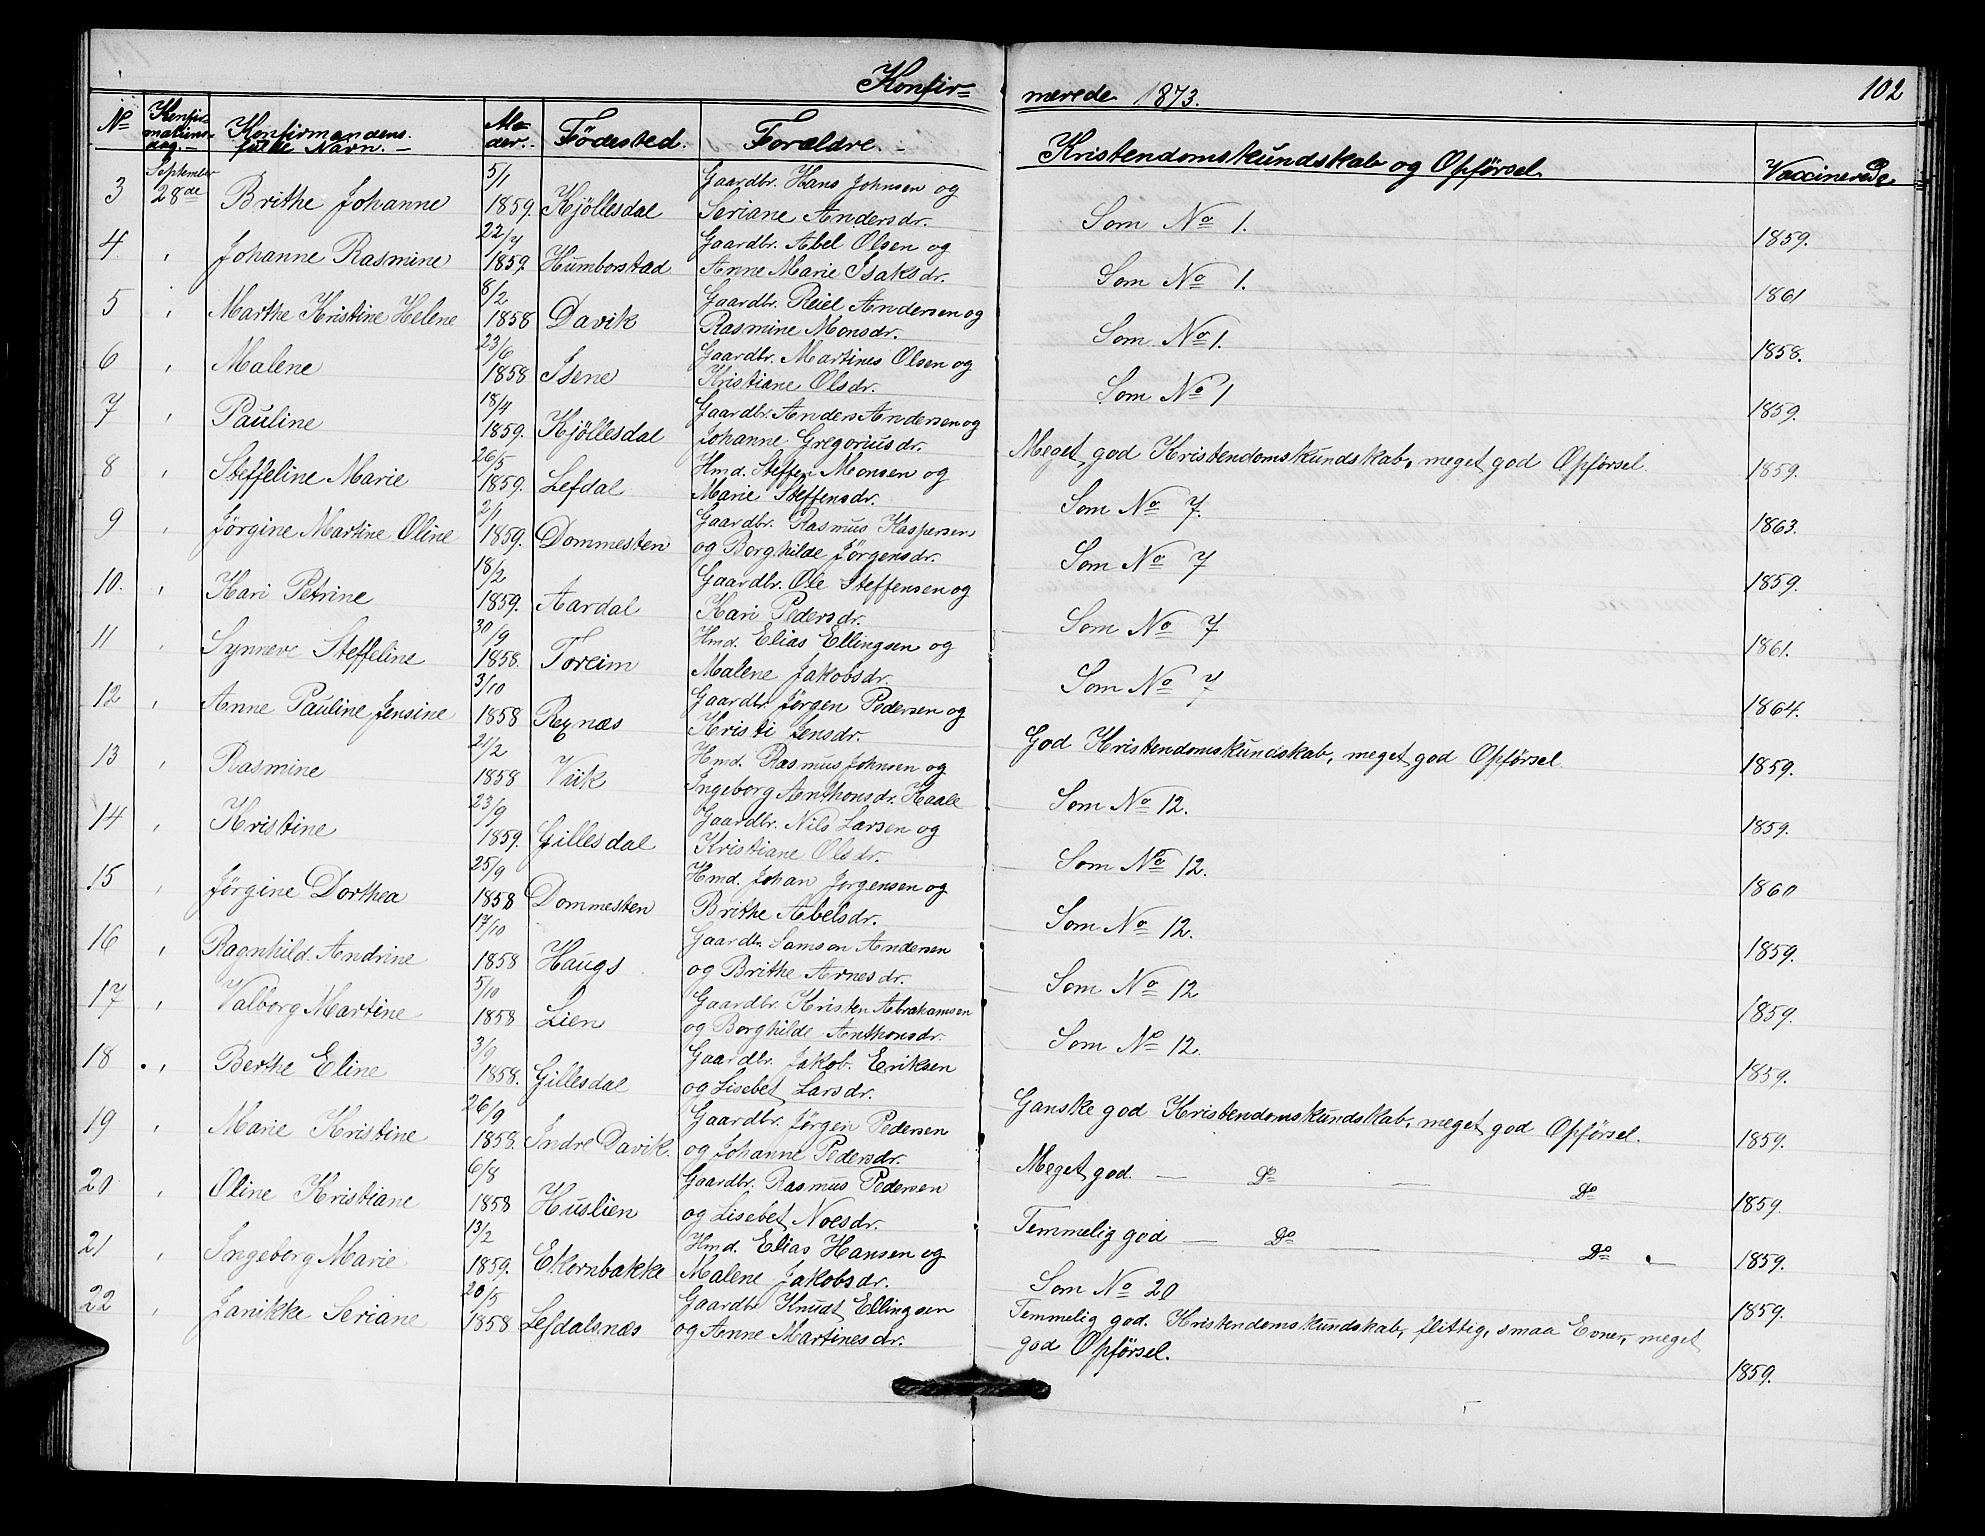 Konfirmerede 1873.
102
No Konfirmationsdag. Konfirmandens fulde Navn. Alder. Födested. Forældre. Kristendomskundskab og Opförsel. Vaccinerede
September
3 28de Brithe Johanne 5/1 1859. Kjöllesdal Gaardbr. Hans Johnsen og Seriane Andersdr. Som No 1. 1859.
4. " Johanne Rasmine 22/7 1859. Humborstad Gaardbr. Abel Olsen og Anne Marie Isaksdr. Som No 1. 1861
5 " Marthe Kristine Helene 8/2 1858 Davik Gaardbr. Reiel Andersen og Rasmine Monsdr. Som No 1. 1858.
6 " Malene 23/6 1858 Isene Gaardbr. Martines Olsen og Kristiane Olsdr. Som No 1 1859.
7 " Pauline 18/4 1859. Kjöllesdal Gaardbr. Anders Andersen og Johanne Gregoriusdr. Meget god Kristendomskundskab, meget god Opförsel. 1859.
8 " Steffeline Marie 26/5 1859. Lefdal Hmd. Steffen Monsen og Marie Steffensdr. Som No 7. 1863.
9 " Jørgine Martine Oline 2/1 1859. Dommesten Gaardbr. Rasmus Kaspersen og Borghilde Jørgensdr. Som No 7 1859.
10. " Kari Petrine 18/2 1859. Aardal Gaardbr. Ole Steffensen og Kari Pedersdr. Som No 7 1861.
11 " Synneve Steffeline 30/9 1858. Toreim Hmd. Elias Ellingsen og Malene Jakobsdr. Som No 7 1864.
12 " Anne Pauline Jensine 3/10 1858 Rexnæs Gaardbr. Jörgen Pedersen og Kristi Jensdr. God Kristendomskundskab, meget god Opförsel. 1859.
13 " Rasmine 21/2 1858 Viik Hmd. Rasmus Johnsen og Ingeborg Anthonsdr. Kaale Som No 12. 1859.
14 " Kristine 23/9 1859. Gillesdal Gaardbr. Nils Larsen og Kristiane Olsdr. Som No 12. 1860
15 " Jørgine Dorthea 25/9 1858 Dommesten Hmd. Johan Jørgensen og Brithe Abelsdr. Som No 12. 1859.
16 " Ragnhild Andrine 17/10 1858 Haugs Gaardbr. Samson Andersen og Brithe Arnesdr. Som No 12 1859.
17 " Valborg Martine 5/10 1858 Lien Gaardbr. Kristen Abrahamsen og Borghilde Anthonsdr. Som No 12. 1859.
18 " Berthe Eline 3/9 1858. Gillesdal Gaardbr. Jakob Eriksen og Lisebet Larsdr. Ganske god Kristendomskundskab, meget god Opförsel. 1859.
19 " Marie Kristine 26/9 1858. Indre Davik. Gaardbr. Jørgen Pedersen og Johanne Pedersdr. Meget god. — Do — Do — 1859.
20 " Oline Kristiane 6/8 1858 Huslien Gaardbr. Rasmus Pedersen og Lisebet Noesdr. Temmelig god — Do — Do — 1859.
21 " Ingeborg Marie 13/2 1859. Ekornbakke Hmd. Elias Hansen og Malene Jakobsdr. Som No 20 1859.
22 " Janikke Seriane 20/5 1858 Lefdalsnæs Gaardbr. Knudt Ellingsen og Anne Martinesdr. Temmelig god. Kristendomskundskab, flittig, smaa Evner, meget god Opförsel. 1859.